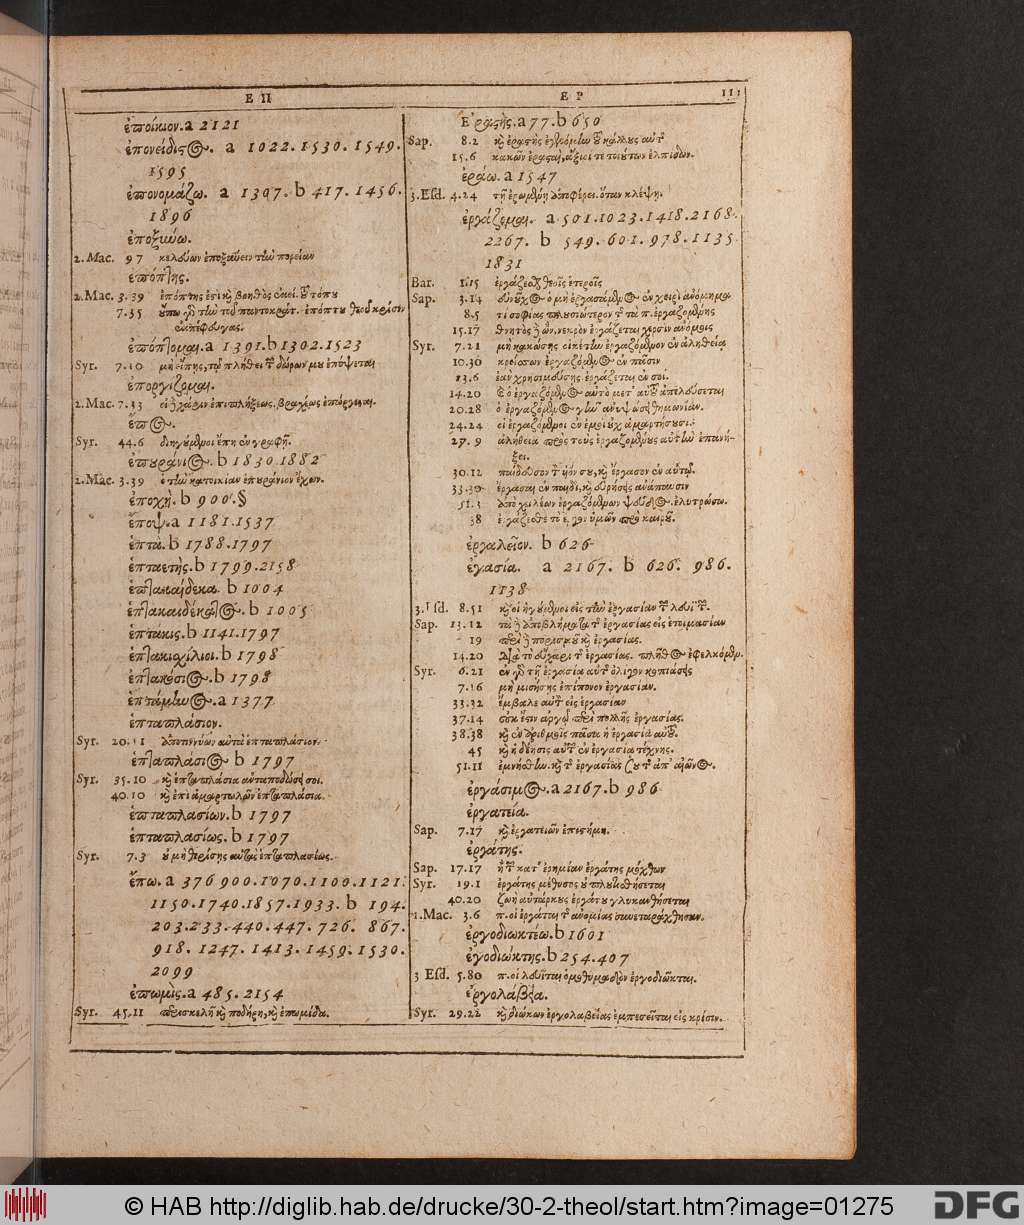 ΕΠ
ΕΡ
111
ἐποίκιον. a 2121
ἐπονείδιστος. a 1022. 1530. 1549.
1595
ἐπονομάζω. a 1397. b 417. 1456.
1896
ἐποξύνω.
2. Mac. 9 7 κελεύων ἐποξύνειν τὴν πορείαν
ἐπόπτης.
2. Mac. 3.39 ἐπόπτης ἐστὶ καὶ βοηθὸς τόπου
7.35
ἐκπέφευγας.
ἐπόπτομαι. a 1391. b 1302. 1523
Syr. 7.10 μὴ εἴπῃς, τῷ πλήθει τῶν δώρων μου ἐπόψεται
ἐποργίζομαι.
2. Mac. 7.33
ἔπος.
Syr. 44.6 διηγούμενοι ἔπη ἐν γραφῇ.
ἐπουράνιος. b 1830. 1882
2. Mac. 3.39 ὁ τὴν κατοικίαν ἐπουράνιον ἔχων.
ἐποχὴ. b 900. §
ἔποψ. a 1181. 1537
ἑπτὰ. b 1788. 1797
ἑπταετὴς. b 1799. 2158
ἑπτακαίδεκα. b 1004
ἑπτακαιδέκατος. b 1005
ἑπτάκις. b 1141. 1797
ἑπτακιχίλιοι. b 1798
ἑπτακόσιος. b 1798
ἑπτάμηνος. a 1377
ἑπταπλάσιον.
Syr. 20.11 ἀποτιννύων αὐτὰ ἑπταπλάσιον.
ἑπταπλάσιος b 1797
Syr. 35.10 καὶ ἑπταπλάσια ἀνταποδώσει σοι.
40.10 καὶ ἐπὶ ἁμαρτωλῶν ἑπταπλάσια.
ἑπταπλασίων. b 1797
ἑπταπλασίως. b 1797
Syr. 7.3 οὐ μὴ θερίσῃς αὐτὰς ἑπταπλασίως.
ἕπω. a 376 900. 1070. 1100. 1121.
1150. 1740. 1857. 1933. b 194.
203. 233. 440. 447. 726. 867.
918. 1247. 1413. 1459. 1530.
2099
ἐπωμὶς. a 485. 2154
Syr. 45.11 περισκελῆ καὶ ποδήρη, καὶ ἐπωμίδα.
Ἐραστὴς. a 77. b 650
Sap. 8.2 καὶ ἐραστὴς ἐγενόμην τοῦ κάλλους αὐτῆς
15.6 κακῶν ἐρασταὶ, ἄξιοί τε τοιούτων ἐλπίδων.
ἐράω. a 1547
3. Esd. 4.24 τῇ ἐρωμένῃ ἀποφέρει. ὅταν κλέψῃ.
ἐργάζομαι. a 501. 1023. 1418. 2168.
2267. b 549. 601. 978. 1135
1831
Bar. 1.15 ἐργάζεσθαι θεοῖς ἑτέροις
Sap. 3.14 εὐνοῦχος ὁ μὴ ἐργασάμενος ἐν χειρὶ ἀνόμημα
8.5 τί σοφίας πλουσιώτερον τῆς τὰ π. ἐργαζομένης
15.17 θνητὸς ὢν, νεκρὸν ἐργάζεται χερσὶν ἀνόμοις
Syr. 7.21 μὴ κακώσῃς οἰκέτην ἐργαζόμενον ἐν ἀληθείᾳ
10.30 κρείσσων ἐργαζόμενος ἐν πᾶσιν
13.6 ἐὰν χρησιμεύσῃς, ἐργάζεται ἐν σοί.
14.20 ὁ ἐργαζόμενος αὐτὸ μετ' αὐτοῦ ἀπελεύσεται
20.28 ὁ ἐργαζόμενος γῆν ἀνυψώσει θημωνίαν.
24.24 οἱ ἐργαζόμενοι ἐν ἐμοὶ οὐχ ἁμαρτήσουσι.
27.9 ἀλήθεια πρὸς τοὺς ἐργαζομένους αὐτὴν ἐπανή-
ξει.
30.12 παίδευσον τὸν υἱόν σου, καὶ ἔργασον ἐν αὐτῷ.
33.30 ἔργασαι ἐν παιδὶ, καὶ εὑρήσεις ἀνάπαυσιν
51.3 ἀπὸ χειλέων ἐργαζομένων ψεῦδος. ἐλυτρώσω.
38 ἐργάζεσθε τὸ ἔργον ὑμῶν πρὸ καιροῦ.
ἐργαλεῖον. b 626
ἐγασία. a 2167. b 626. 986.
1138
3. Esd. 8.51
Sap. 13.12 τὰ ἀποβλήματα τῆς ἐργασίας εἰς ἑτοιμασίαν
19 περὶ πορισμοῦ καὶ ἐργασίας.
14.20 διὰ τὸ εὔχαρι τῆς ἐργασίας. πλῆθος ἐφελκόμενον.
Syr. 6.21 ἐν τῇ ἐργασίᾳ αὐτῆς ὀλίγον κοπιάσεις
7.16 μὴ μισήσῃς ἐπίπονον ἐργασίαν.
33.32 ἔμβαλε αὐτὸν εἰς ἐργασίαν
37.14 περὶ πολλῆς ἐργασίας.
38.38
45 καὶ ἡ δέησις αὐτῶν ἐν ἐργασίᾳ τέχνης.
51.11 ἐμνήσθην. καὶ τῆς ἐργασίας σου τῆς ἀπ' αἰῶνος.
ἐργάσιμος. a 2167. b 986
ἐργατεία.
Sap. 7.17 καὶ ἐργατειῶν ἐπιστήμη.
ἐργάτης.
Sap. 17.17 ἢ τῶν κατ' ἐρημίαν ἐργάτης μόχθων
Syr. 19.1 ἐργάτης μέθυσος οὐ πλουτισθήσεται
40.20 ζωὴ αὐτάρκους ἐργάτου γλυκανθήσεται
1. Mac. 3.6 π. οἱ ἐργάται τῆς ἀνομίας συνεταράχθησαν.
ἐργοδιωκτέω. b 1601
ἐγοδιώκτης. b 254. 407
3 Esd. 5.80 π. οἱ λευῖται ὁμοθυμαδὸν ἐργοδιῶκται.
ἐργολάβεια.
Syr. 29.22 καὶ διώκων ἐργολαβείας ἐμπεσεῖται εἰς κρίσιν.
© HAB http://diglib.hab.de/drucke/30-2-theol/start.htm?image=01275
DFG